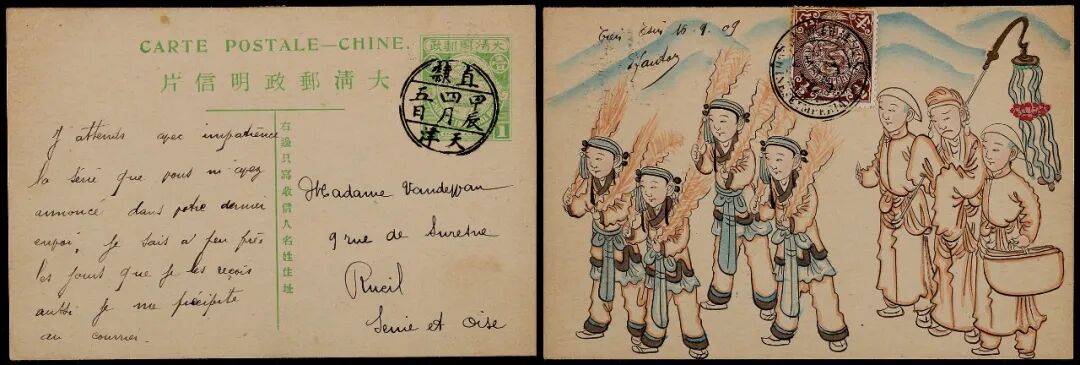 CARTE POSTALE—CHINE.
大清郵政明信片
大清國郵政
1
直隸
甲辰
四月
五日
天津
右邊只寫收信人名姓住址
J'attends avec impatience
la série que vous m'avez
annoncé dans votre dernier
envoi. Je sais à peu près
les jours que je les reçois
aussi je me précipite
au courrier.
Madame
9 rue de Suresne
Rueil
Seine et Oise
Tien Tsin